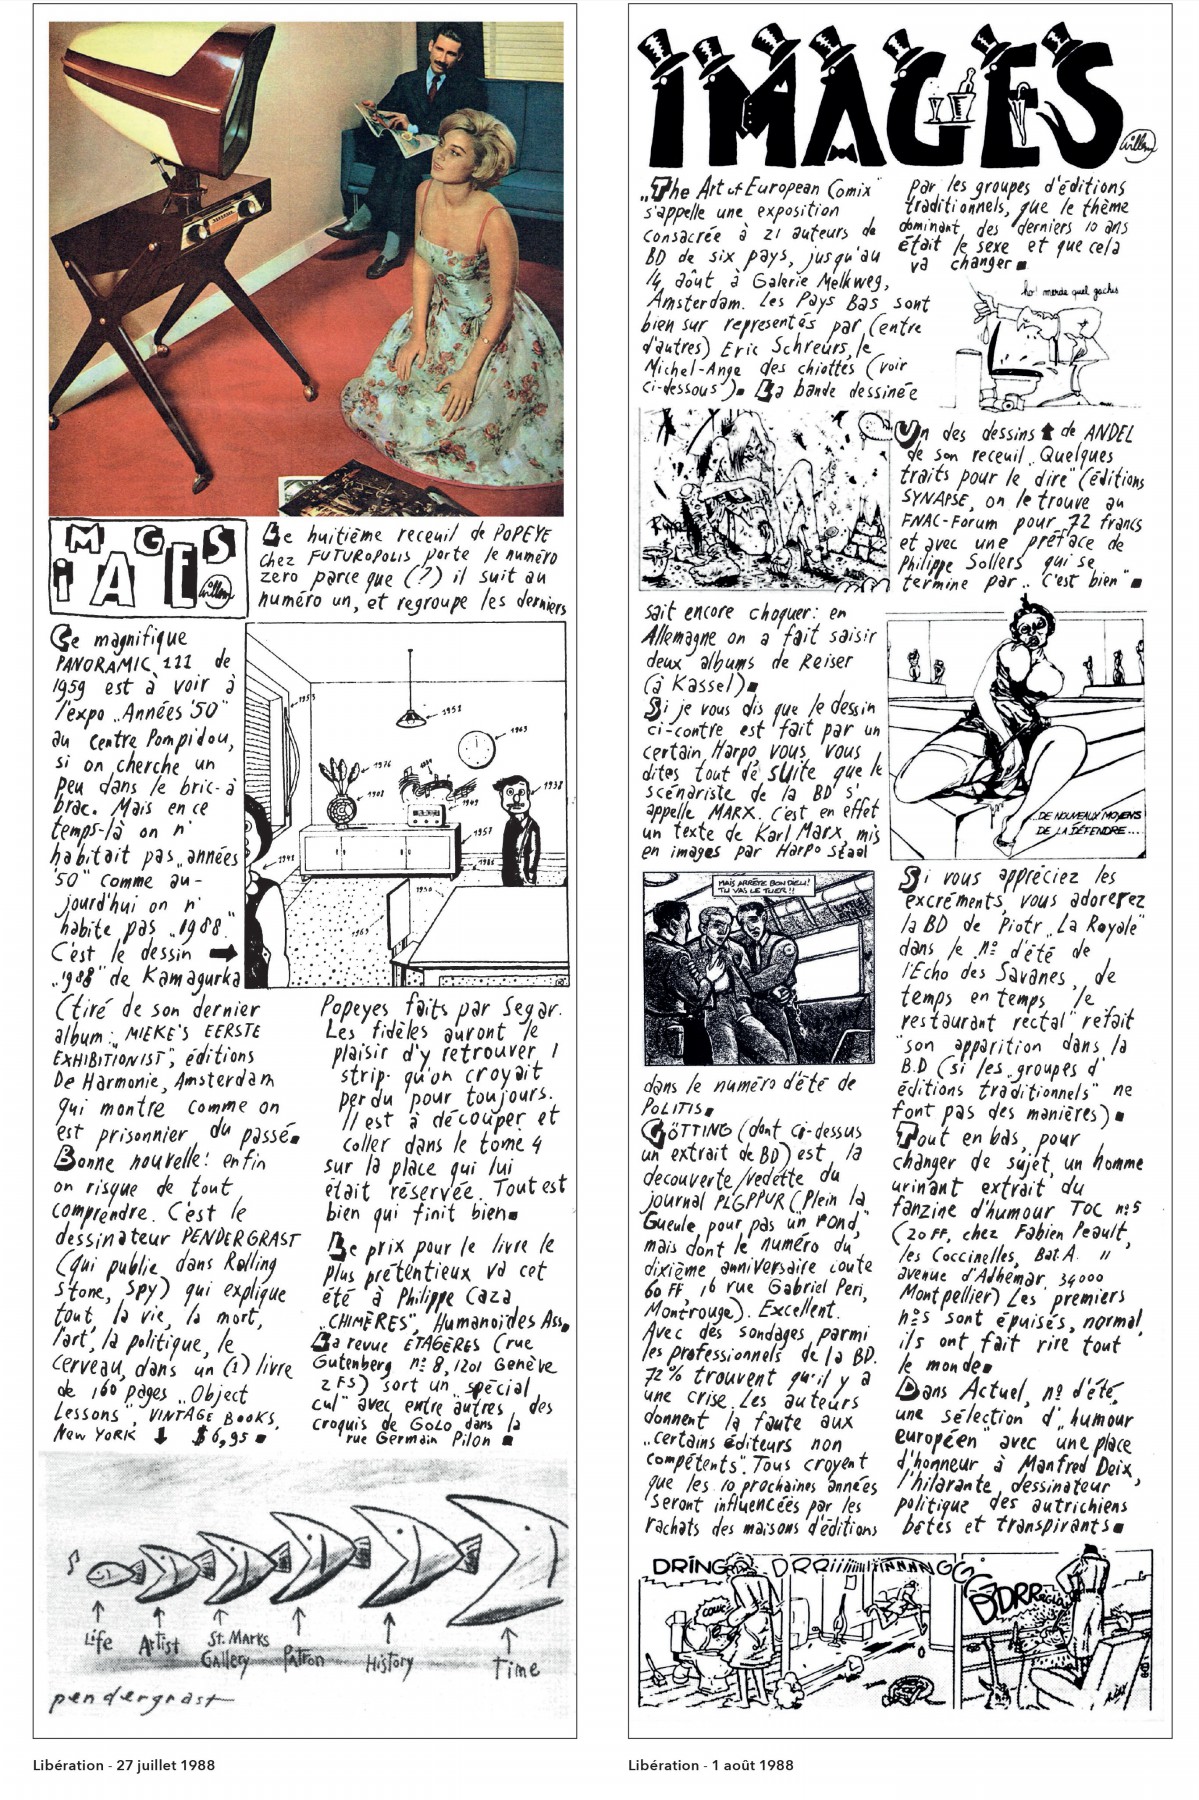 IMAGES
Willem
Le huitième receuil de POPEYE
chez FUTUROPOLIS porte le numéro
zero parce que (?) il suit au
numéro un, et regroupe les derniers
Ce magnifique
PANORAMIC 111 de
1959 est à voir à
l'expo „Années '50"
au centre Pompidou,
si on cherche un
peu dans le bric-à
brac. Mais en ce
temps-là on n'
habitait pas „années
'50" comme au-
jourd'hui on n'
habite pas „1988".
C'est le dessin
„1988" de Kamagurka
1953
1952
1963
1976
1902
1949
1938
1957
1948
1986
1950
1963
(tiré de son dernier
album: „MIEKE'S EERSTE
EXHIBITIONIST", éditions
De Harmonie, Amsterdam
qui montre comme on
est prisonnier du passé.
Bonne nouvelle! enfin
on risque de tout
comprendre. C'est le
dessinateur PENDERGRAST
(qui publie dans Rolling
Stone, Spy) qui explique
tout, la vie, la mort,
l'art, la politique, le
cerveau, dans un (1) livre
de 160 pages „Object
Lessons", VINTAGE BOOKS,
New YORK $6,95
Popeyes faits par Segar.
Les fidèles auront le
plaisir d'y retrouver 1
strip qu'on croyait
perdu pour toujours.
Il est à découper et
coller dans le tome 4
sur la place qui lui
était réservée. Tout est
bien qui finit bien
Le prix pour le livre le
plus prétentieux va cet
été à Philippe Caza
„CHIMÈRES", Humanoïdes Ass.
La revue ÉTAGÈRES (rue
Gutenberg n° 8, 1201 Genève
2 FS) sort un „spécial
cul" avec entre autres des
croquis de GOLO dans la
rue Germain Pilon
Life
Artist
St. Marks
Gallery
Patron
History
Time
pendergrast
Libération - 27 juillet 1988
IMAGES
Willem
„The Art of European Comix"
s'appelle une exposition
consacrée à 21 auteurs de
BD de six pays, jusqu'au
14 août à Galerie Melkweg,
Amsterdam. Les Pays Bas sont
bien sur representés par (entre
d'autres) Eric Schreurs, le
Michel-Ange des chiottes (voir
ci-dessous). La bande dessinée
sait encore choquer: en
Allemagne on a fait saisir
deux albums de Reiser
(à Kassel).
Si je vous dis que le dessin
ci-contre est fait par un
certain Harpo vous vous
dites tout de suite que le
scénariste de la BD s'
appelle MARX. C'est en effet
un texte de Karl Marx, mis
en images par Harpo Staal
MAIS ARRÊTE BON DIEU!
TU VAS LE TUER!!
dans le numéro d'été de
POLITIS.
GÖTTING (dont ci-dessus
un extrait de BD) est la
decouverte/vedette du
journal PLGPPUR („Plein la
Gueule pour pas un rond",
mais dont le numéro du
dixième anniversaire coute
60 FF, 16 rue Gabriel Peri,
Montrouge). Excellent.
Avec des sondages, parmi
les professionnels de la BD.
72% trouvent qu'il y a
une crise. Les auteurs
donnent la faute aux
„certains éditeurs non
compétents". Tous croyent
que les 10 prochaines années
seront influencées par les
rachats des maisons d'éditions
par les groupes d'éditions
traditionnels, que le thème
dominant des derniers 10 ans
était le sexe et que cela
va changer
ho! merde quel gachis
Un des dessins de ANDEL
de son receuil „Quelques
traits pour le dire" (éditions
SYNAPSE, on le trouve au
FNAC-Forum pour 72 francs
et avec une préface de
Philippe Sollers qui se
termine par „C'est bien"
DE NOUVEAUX MOYENS
DE LA DÉFENDRE...
Si vous appréciez les
excréments, vous adorerez
la BD de Piotr „La Royale"
dans le n° d'été de
l'Echo des Savanes, de
temps en temps „le
restaurant rectal" refait
son apparition dans la
B.D (si les „groupes d'
éditions traditionnels" ne
font pas des manières)
Tout en bas, pour
changer de sujet, un homme
urinant extrait du
fanzine d'humour TOC n°5
(20FF, chez Fabien Peault,
les Coccinelles, Bat.A. 11
avenue d'Adhémar 34000
Montpellier) Les premiers
n°s sont épuisés, normal,
ils ont fait rire tout
le monde
Dans Actuel, n° d'été,
une sélection d'„humour
européen" avec une place
d'honneur à Manfred Deix,
l'hilarante dessinateur
politique des autrichiens
bêtes et transpirants
DRING
DRRiiiiiiiiiNNNNGGG
COUIC
Libération - 1 août 1988